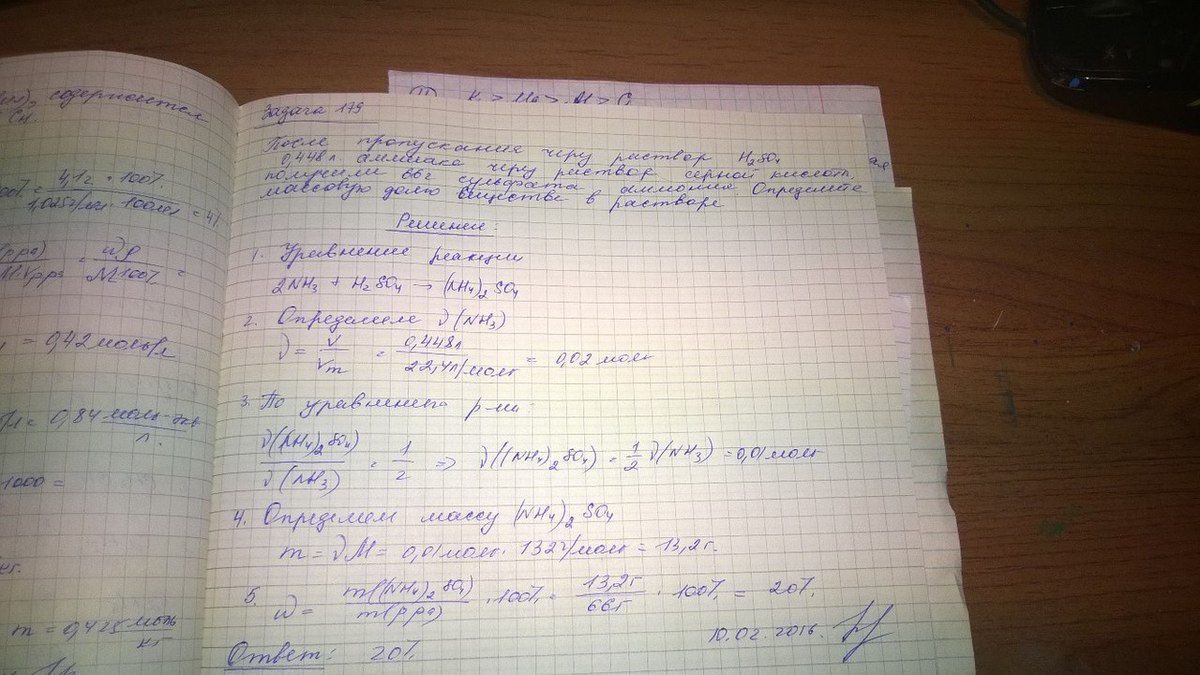 содержится
4,1г · 100%
1,025г/мл · 100мл = 4%
ωρ
M·100%
= 0,42 моль/л
= 0,84 моль-экв
л.
1000 =
m = 0,425 моль
кг
K > Mg > Al > C
Задача 179
После пропускания через раствор H₂SO₄
0,448 л аммиака через раствор серной кислоты,
получили 66г сульфата аммония. Определите
массовую долю вещества в растворе
Решение:
1. Уравнение реакции
2NH₃ + H₂SO₄ → (NH₄)₂SO₄
2. Определяем ν(NH₃)
ν = V/Vm = 0,448л/22,4л/моль = 0,02 моль
3. По уравнению р-ии:
ν((NH₄)₂SO₄)/ν(NH₃) = 1/2 => ν((NH₄)₂SO₄) = 1/2 ν(NH₃) = 0,01 моль
4. Определяем массу (NH₄)₂SO₄
m = νM = 0,01 моль · 132г/моль = 13,2г.
5. ω = m((NH₄)₂SO₄)/m(р-ра) · 100% = 13,2г/66г · 100% = 20%.
10.02.2016.
Ответ: 20%